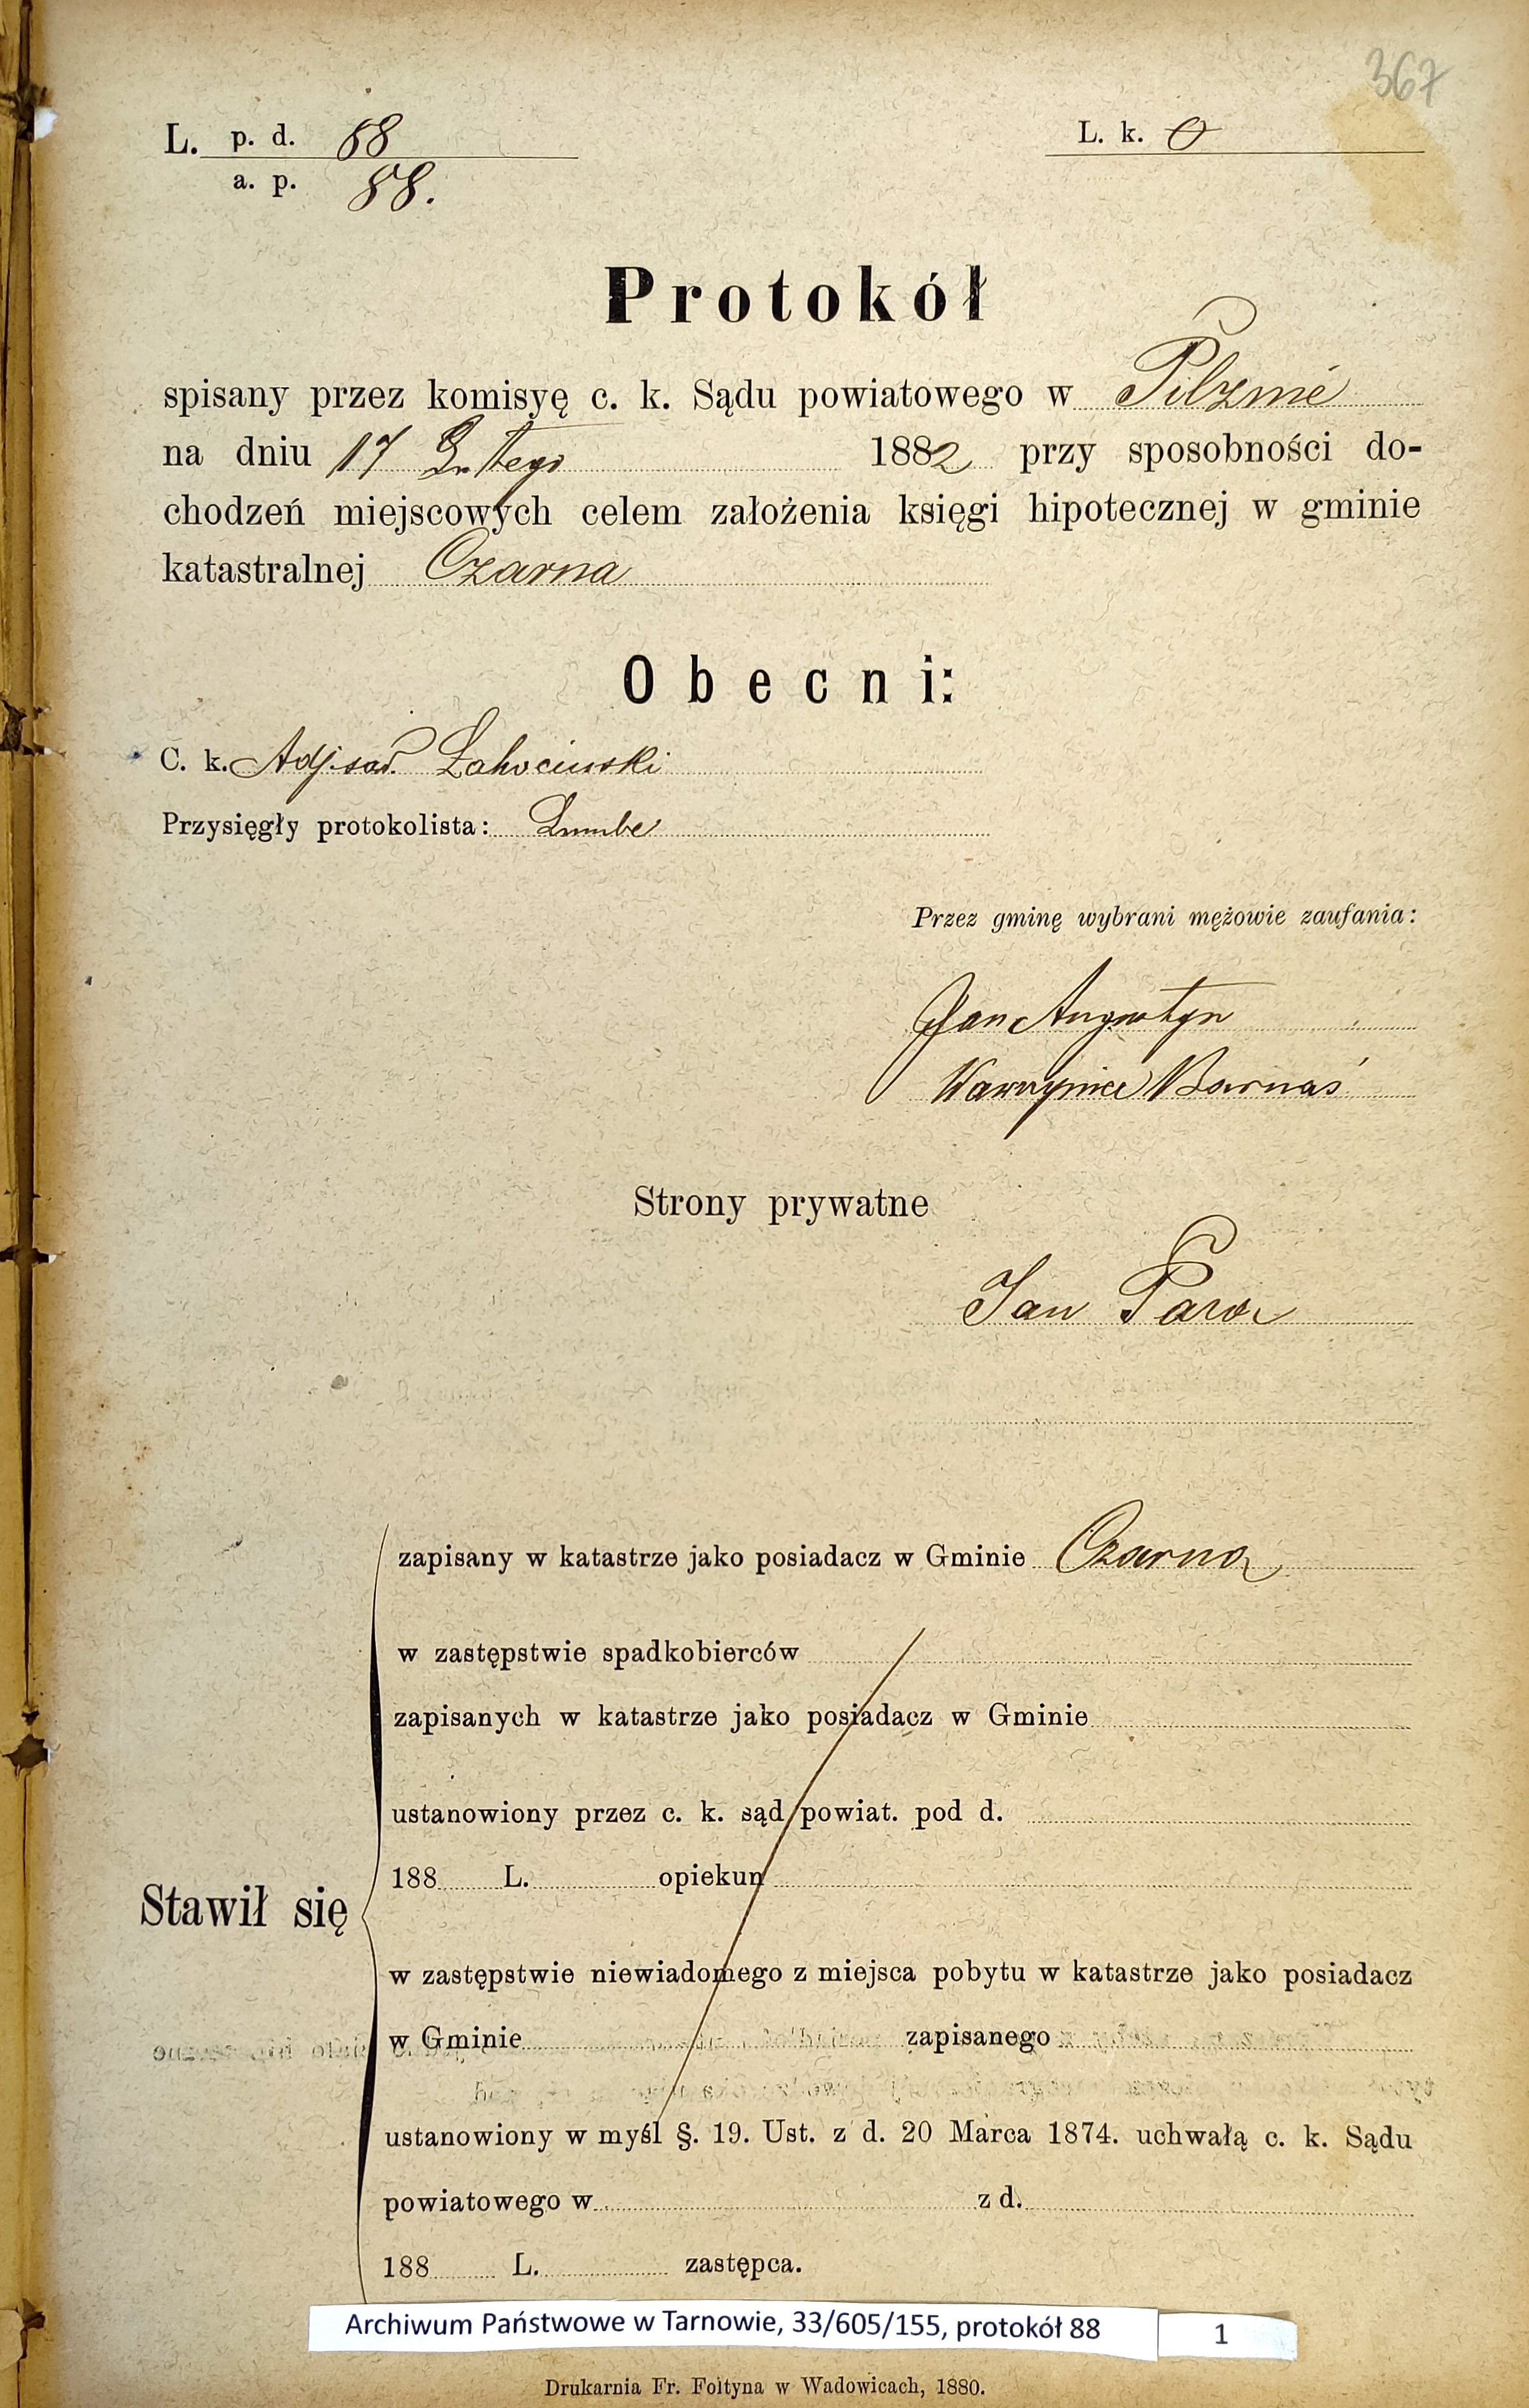 367
L. p. d. 88
a. p. 88.
L. k. 0
Protokół
spisany przez komisyę c. k. Sądu powiatowego w Pilznie
na dniu 17 Lutego 1882 przy sposobności do-
chodzeń miejscowych celem założenia księgi hipotecznej w gminie
katastralnej Czarna
Obecni:
C. k. Adj. sąd.
Przysięgły protokolista:
Przez gminę wybrani mężowie zaufania:
Jan Augustyn
Wawrzyniec Barnaś
Strony prywatne
Jan
zapisany w katastrze jako posiadacz w Gminie Czarna
w zastępstwie spadkobierców
zapisanych w katastrze jako posiadacz w Gminie
ustanowiony przez c. k. sąd powiat. pod d.
188 L. opiekun
Stawił się
w zastępstwie niewiadomego z miejsca pobytu w katastrze jako posiadacz
w Gminie zapisanego
ustanowiony w myśl §. 19. Ust. z d. 20 Marca 1874. uchwałą c. k. Sądu
powiatowego w z d.
188 L. zastępca.
Archiwum Państwowe w Tarnowie, 33/605/155, protokół 88 1
Drukarnia Fr. Foltyna w Wadowicach, 1880.